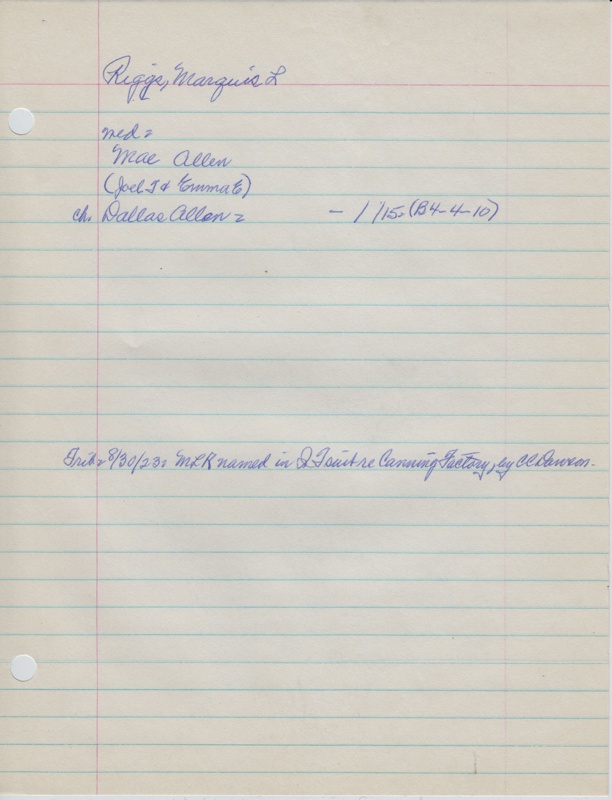 Riggs, Marquis L
med =
Mae Allen
(Joel T & Emma E)
ch. Dallas Allen = - / 1/15 = (B4-4-10)
Trib = 8/30/23 = MLR named in suit re Canning Factory, by CC Dawson.